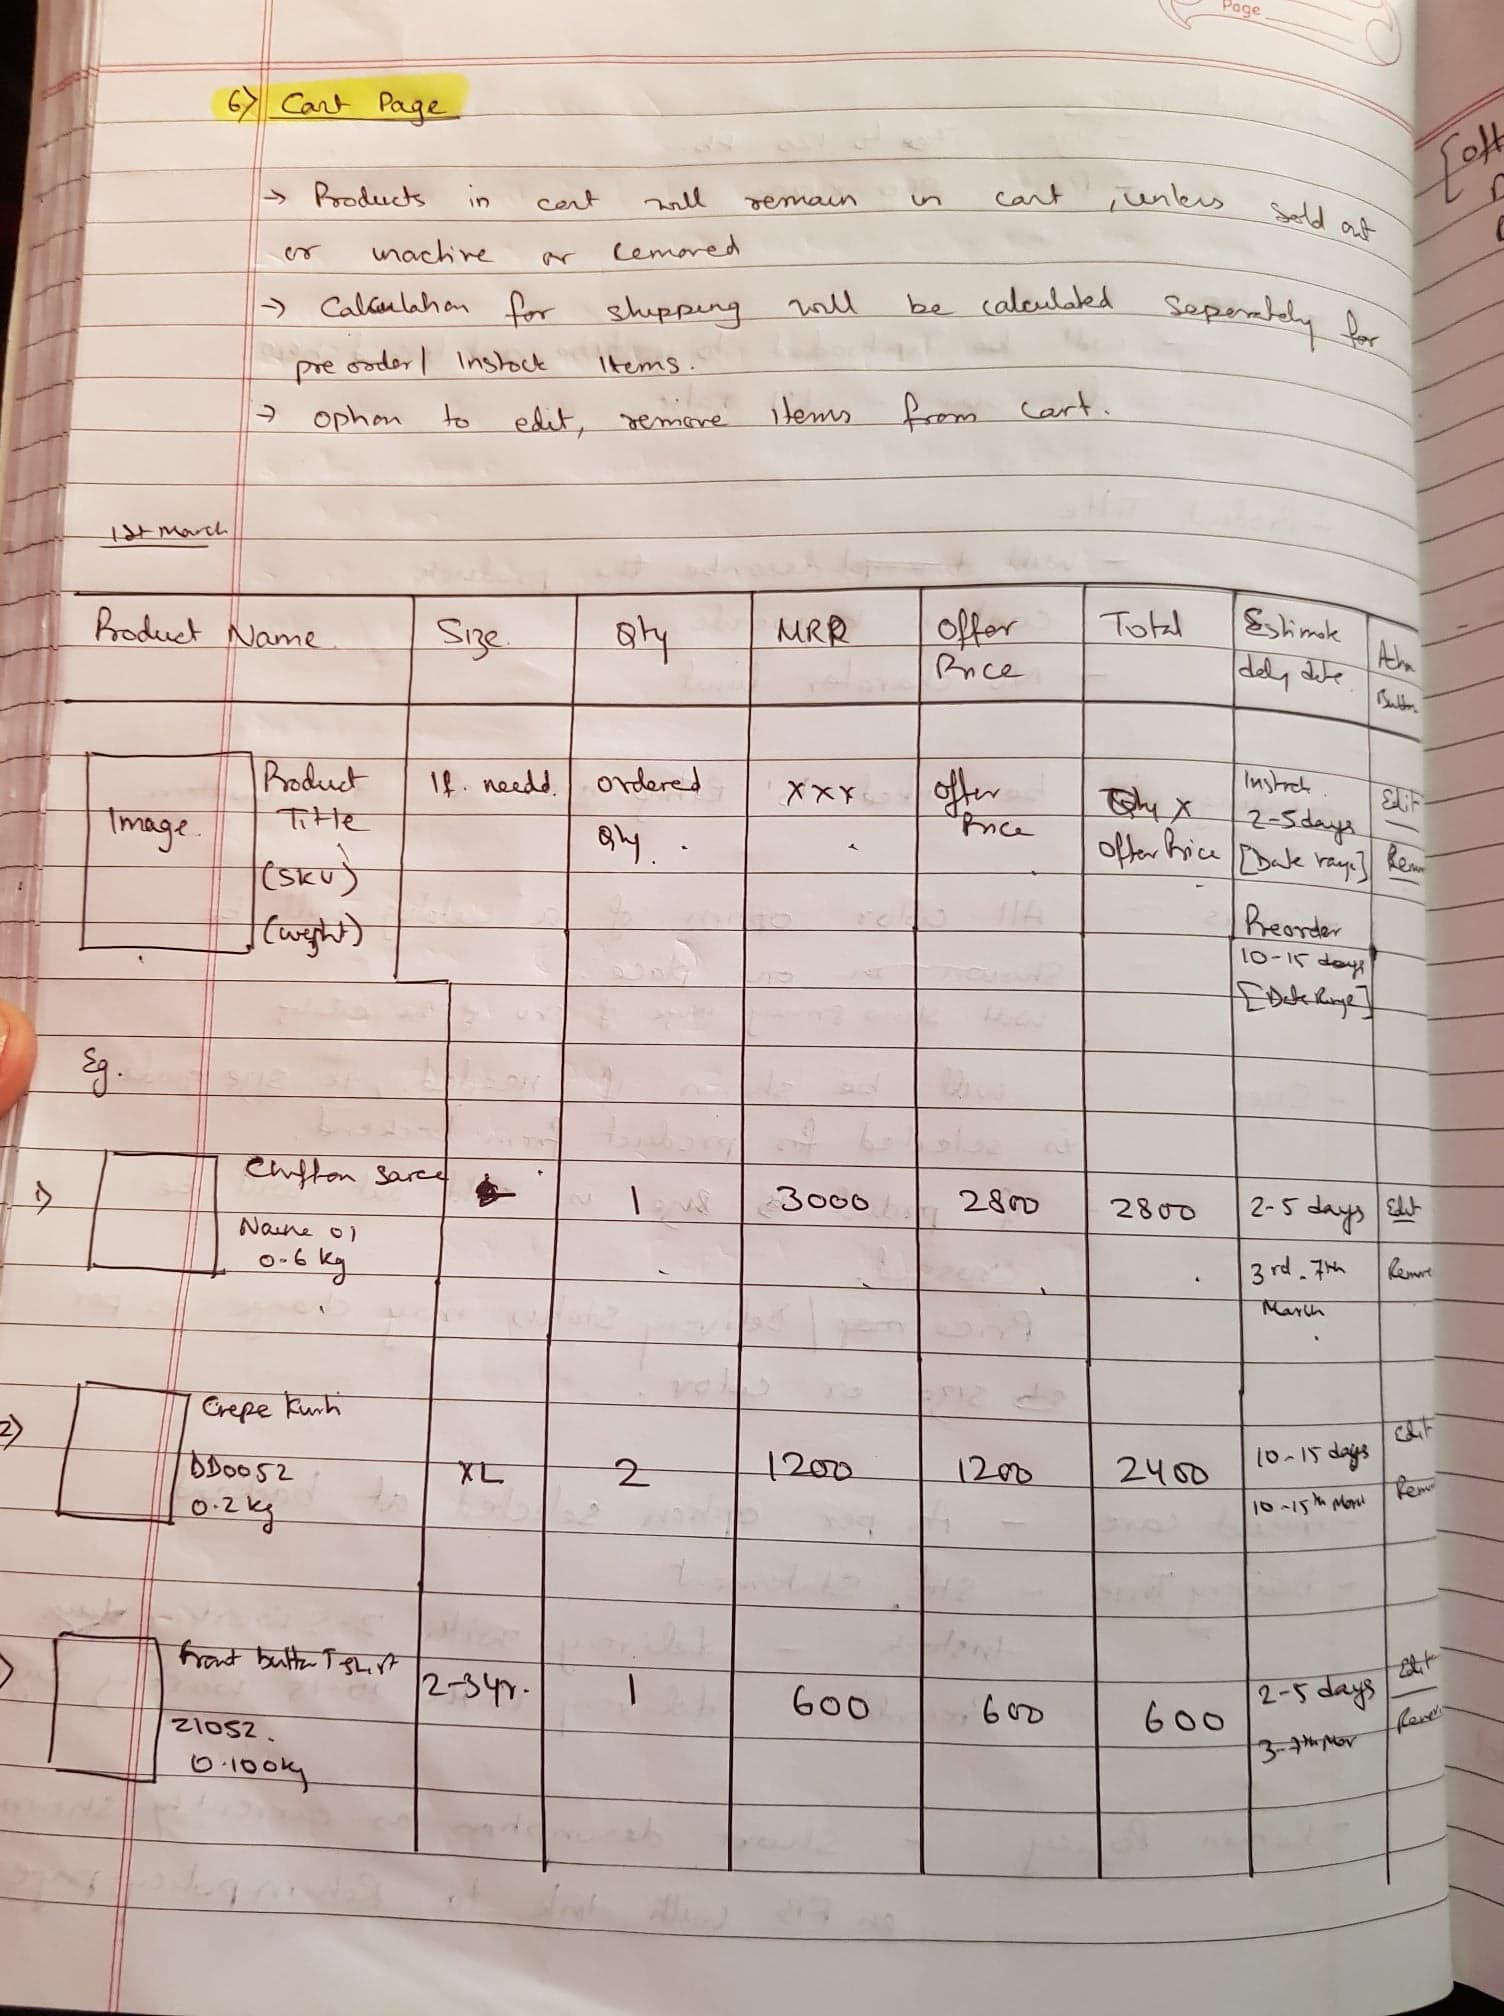 Page
6) Cart Page
→ Products in cart will remain in cart, unless sold out
or inactive or removed
→ Calculation for shipping will be calculated seperately for
pre order/ Instock Items.
→ option to edit, remove items from cart.
1st March
Product Name. Size. Qty MRP Offer Price Total Estimate dely date Button
Image. Product Title (SKU) (weight) If. needd. ordered Qty. xxx Offer Price Qty x Offer Price Instock. 2-5days [Date range] Edit
Preorder
10-15 days
[Date Range]
Eg.
1) Chiffon Saree 1 3000 2800 2800 2-5 days Edit
Naine 01
0.6 kg
3rd - 7th Remove
March
2) Crepe Kurti
DD0052 XL 2 1200 1200 2400 10-15 days Edit
0.2 kg 10-15th
Front button Tshirt 2-3yr. 1 600 600 600 2-5 days Edit
21052. 3-7th
0.100kg